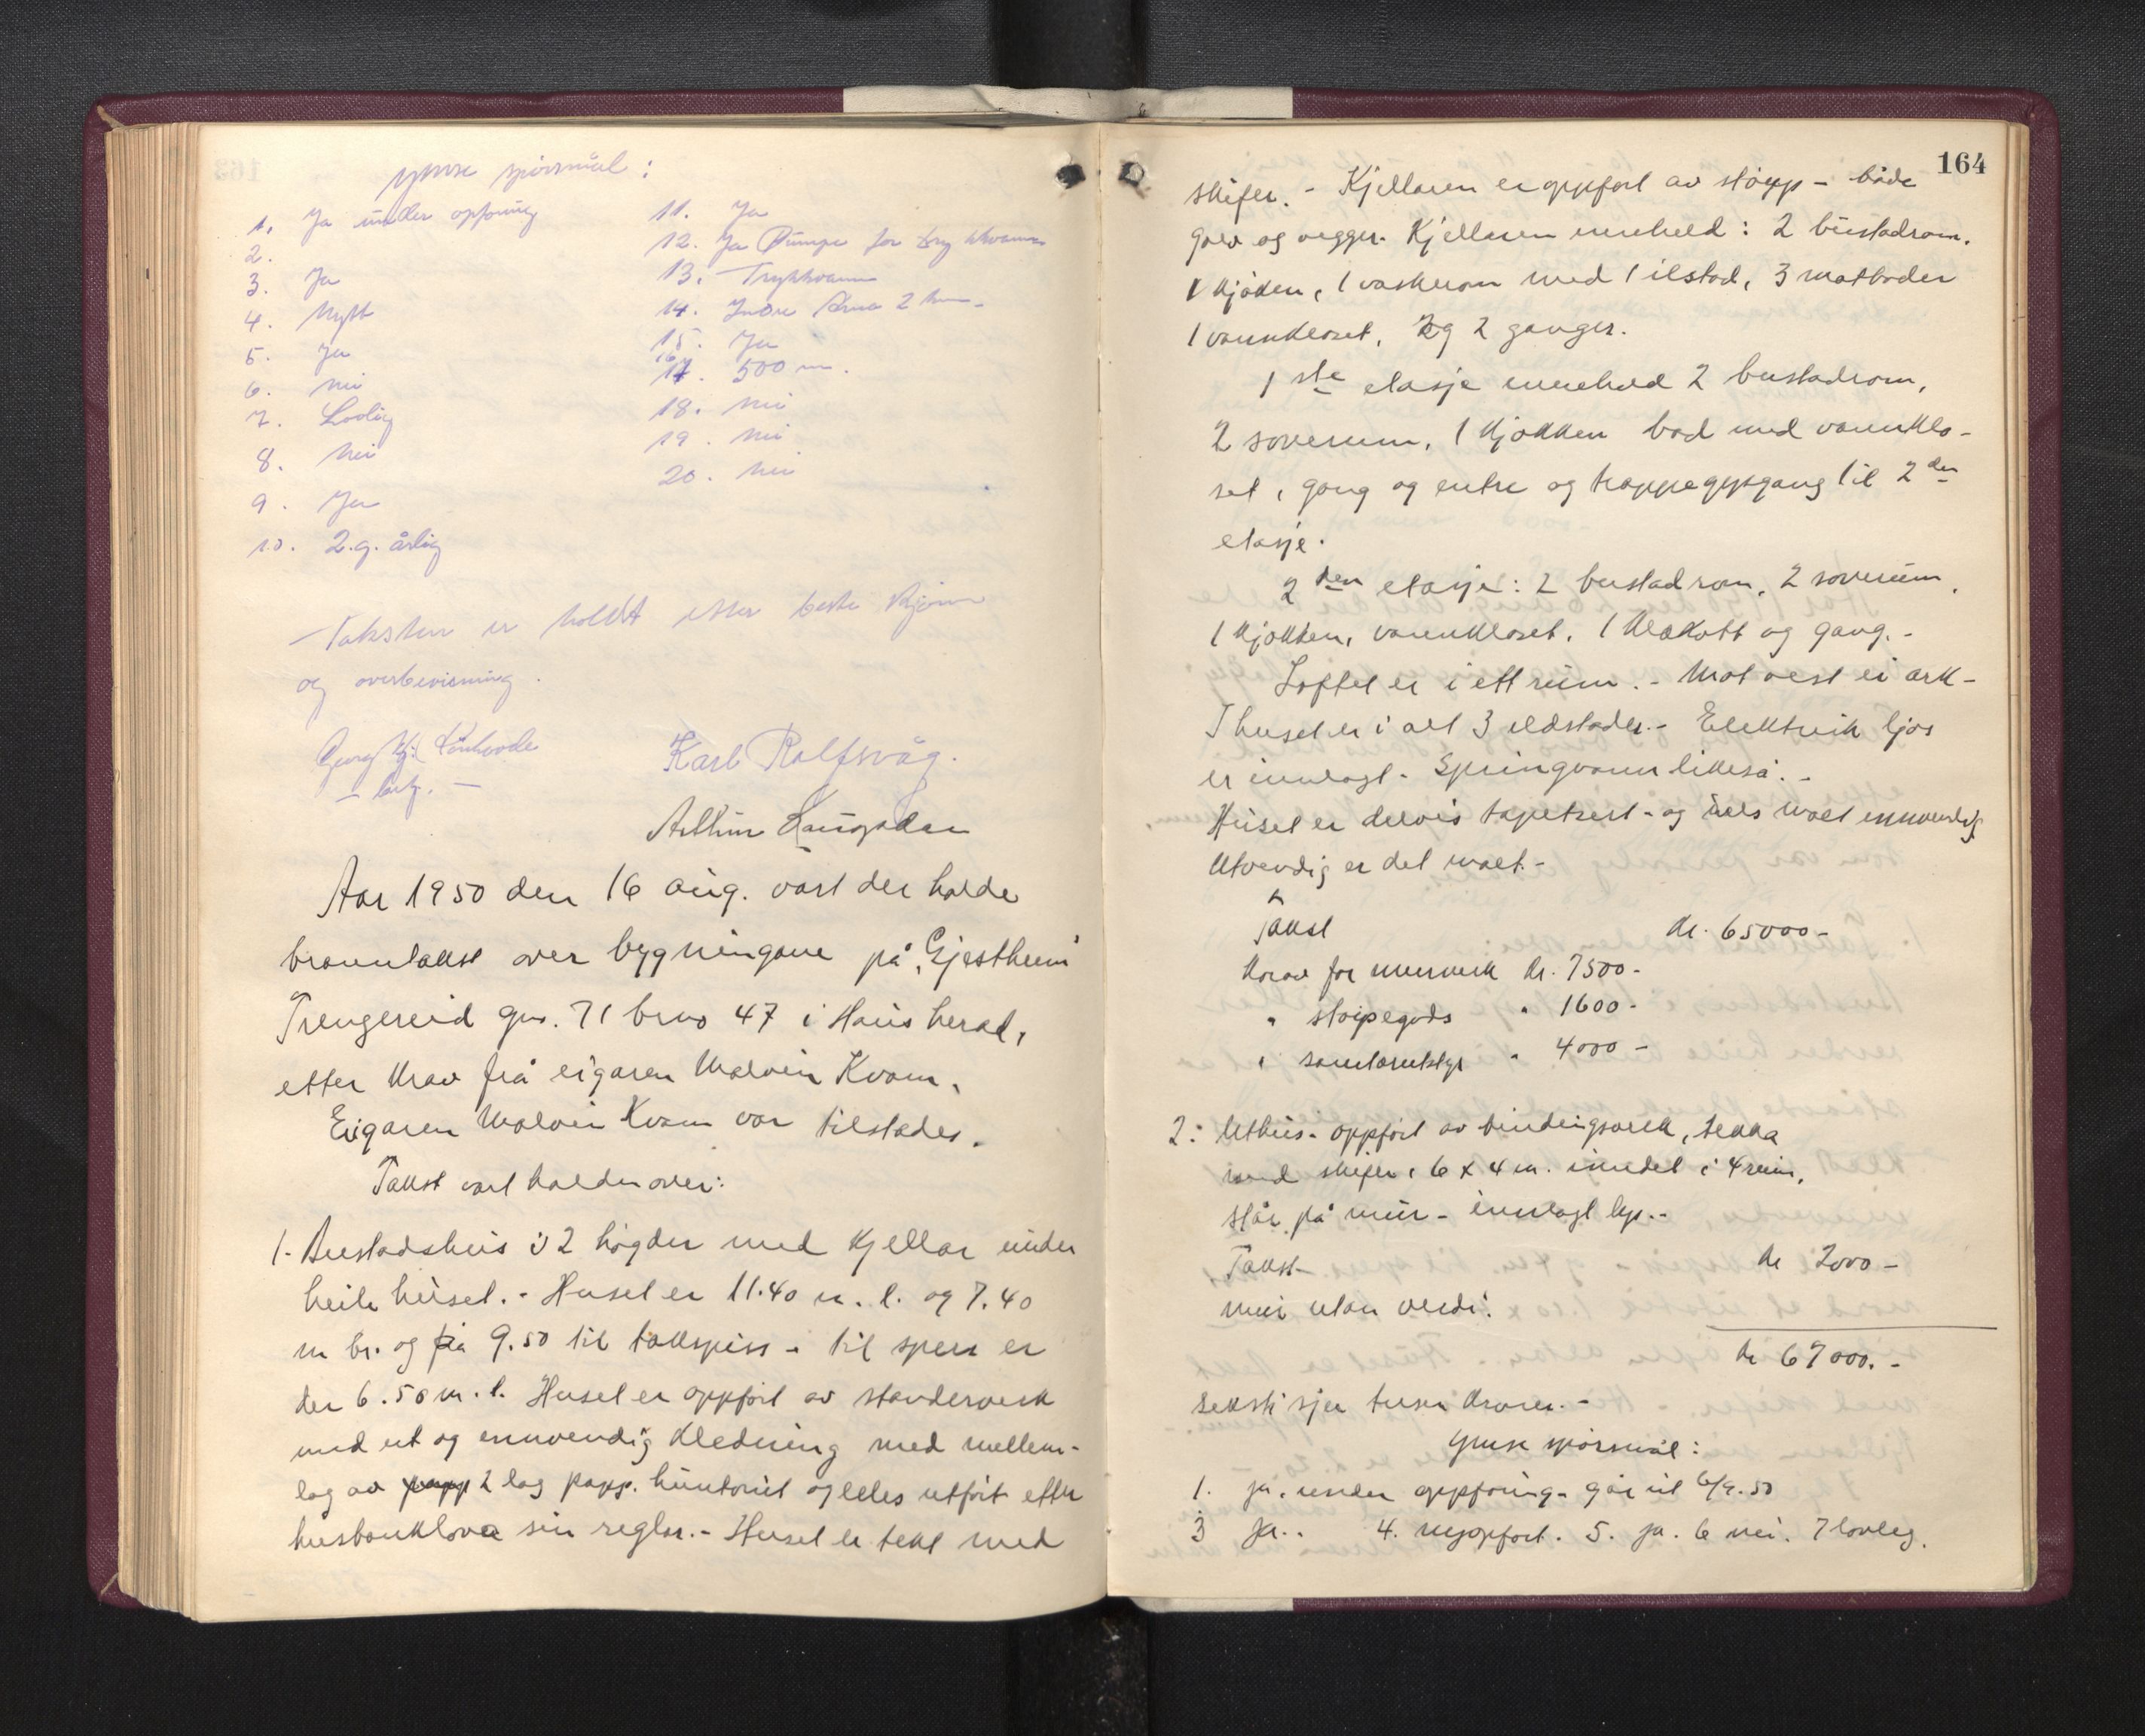 Ymse spörsmål:
1. Ja under opföring
2.
3. Ja
4. Nytt
5. Ja
6. nei
7. Lovlig
8. Nei
9. Ja
10. 2.g. årlig
11. Ja
12. Ja Pumpe for
13. Trykkvann
14. Indre Arna 2 km.
15. Ja
16. 17. 500 m.
18. nei
19. nei
20. nei
Taksten er holdt etter beste skjönn
og overbevisning.
Georg Kj.
Karl Rolfsvåg.
Arthur
Aar 1950 den 16 aug. vart der halde
branntakst over bygningane på "Gjestheim"
Trengereid gnr. 71 brno 47 i Haus herad,
etter krav frå eigaren Malvin Kvam.
Eigaren Malvin Kvam var tilstades.
Takst vart halden over:
1. Bustadshus i 2 högder med kjellar under
heile huset. - Huset er 11.40 m. l. og 7.40
m br. og frå 9.50 til takspiss - til sperr er
der 6.50 m. l. Huset er oppfört av standerverk
med ut og innvendig kledning med mellem-
lag av papp 2 lag papp. huntonit og elles utfört etter
husbanklova sin reglar. - Huset er tekt med
164
skifer. - Kjellaren er oppfört av stöyp - både
golv og vegger. Kjellaren inneheld: 2 bustadrom.
1 kjöken, 1 vaskerom med 1 ilstad, 3 matboder
1 vannkloset, og 2 ganger.
1ste etasje inneheld 2 bustadrom,
2 soverum, 1 kjökken bad med vannklo-
set, gang og entre og trappeoppgang til 2den
etasje.
2den etasje: 2 bustadrom, 2 soverum,
1 kjökken, vannkloset, 1 klekott og gang. -
Loftet er i ett rum. - Mot vest ei ark -
I huset er i alt 3 eldstader. - Elektrisk ljos
er innlagt - Springvann likeså. -
Huset er delvis tapetsert - og dels malt innvendig
Utvendig er det malt. -
Takst kr. 65000 -
Herav for murverk kr. 7500 -
" stöipegods " 1600 -
" sanitærutstyr " 4000 -
2: Uthus - oppfört av bindingsverk, tekka
med skifer, 6 x 4 m. inndelt i 4 rum,
står på mur - innlagt lys. -
Takst - kr 2000 -
mur utan verdi.
kr 67000. -
seksti sju tusen kroner. -
Ymse spörsmål:
1. ja, under oppföring - går ut 6/9. 50
3 Ja. . 4. nyoppfört. 5. ja. 6 nei. 7 lovleg.